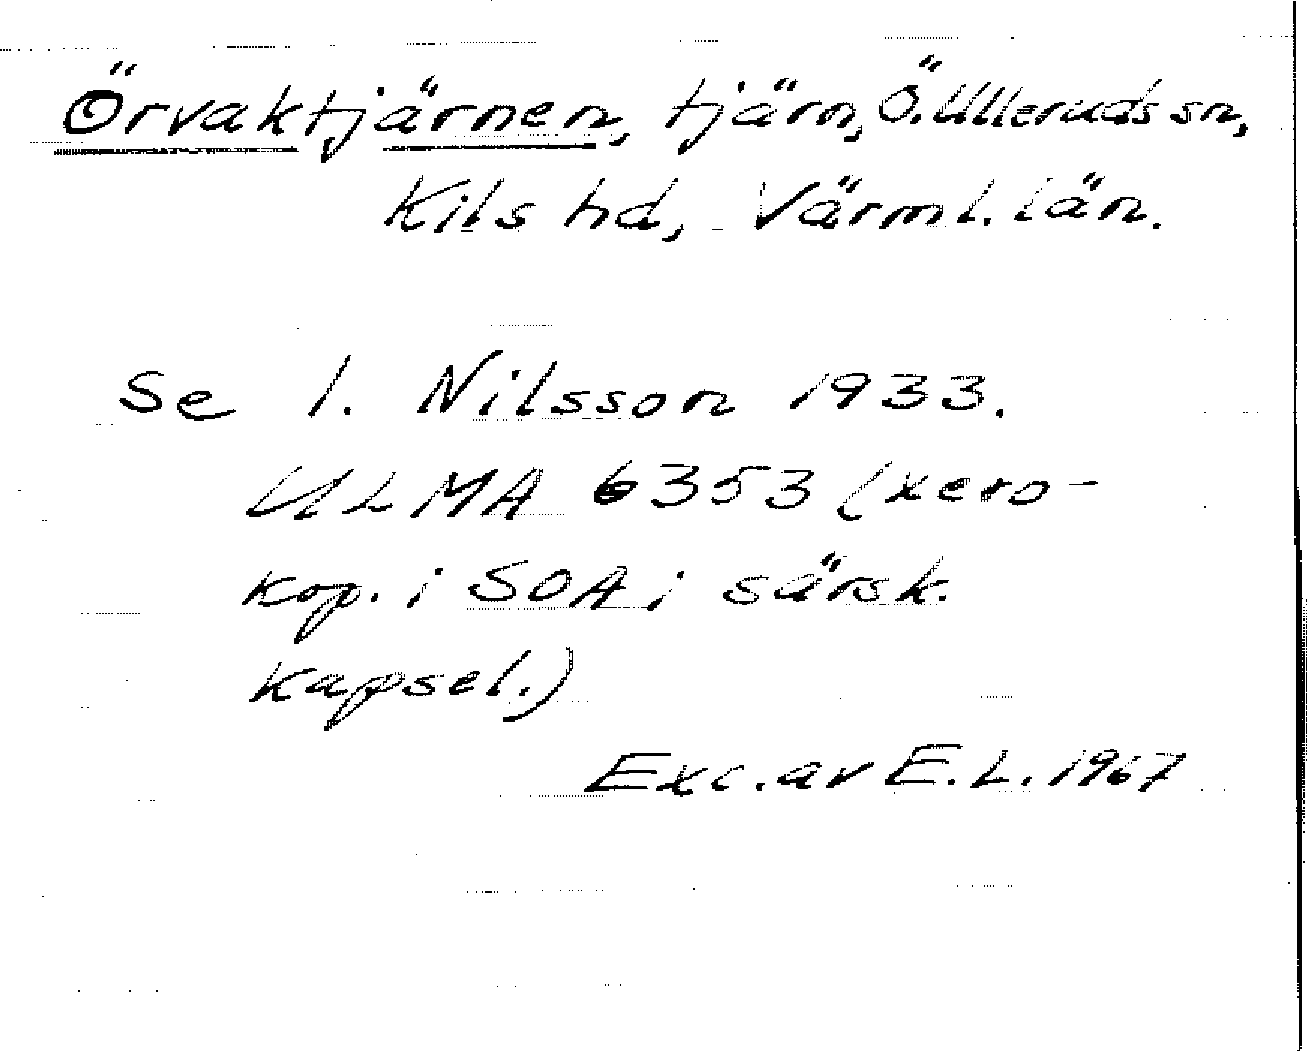 Örvaktjärnen, tjärn, Ö. Ulleruds sn,
Kils hd, Värml. län.
Se I. Nilsson 1933.
ULMA 6353 (xero-
kop. i SOA i särsk.
kapsel.)
Exc. av E. L. 1967